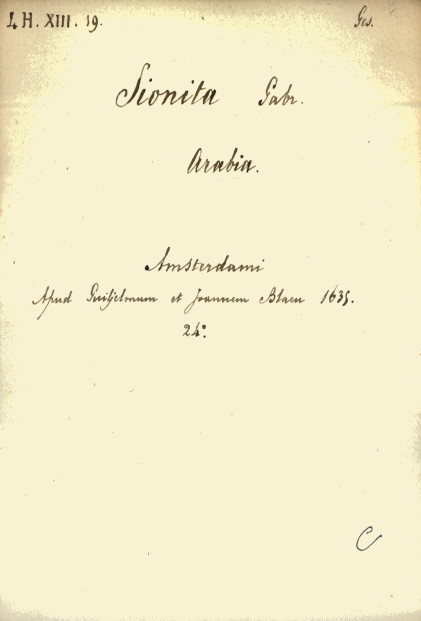 L H. XIII. 19. Ges.
Sionita Gabr.
Arabia.
Amsterdami
Apud Guiljelmum et Joannem Blaeu 1635.
24°.
C